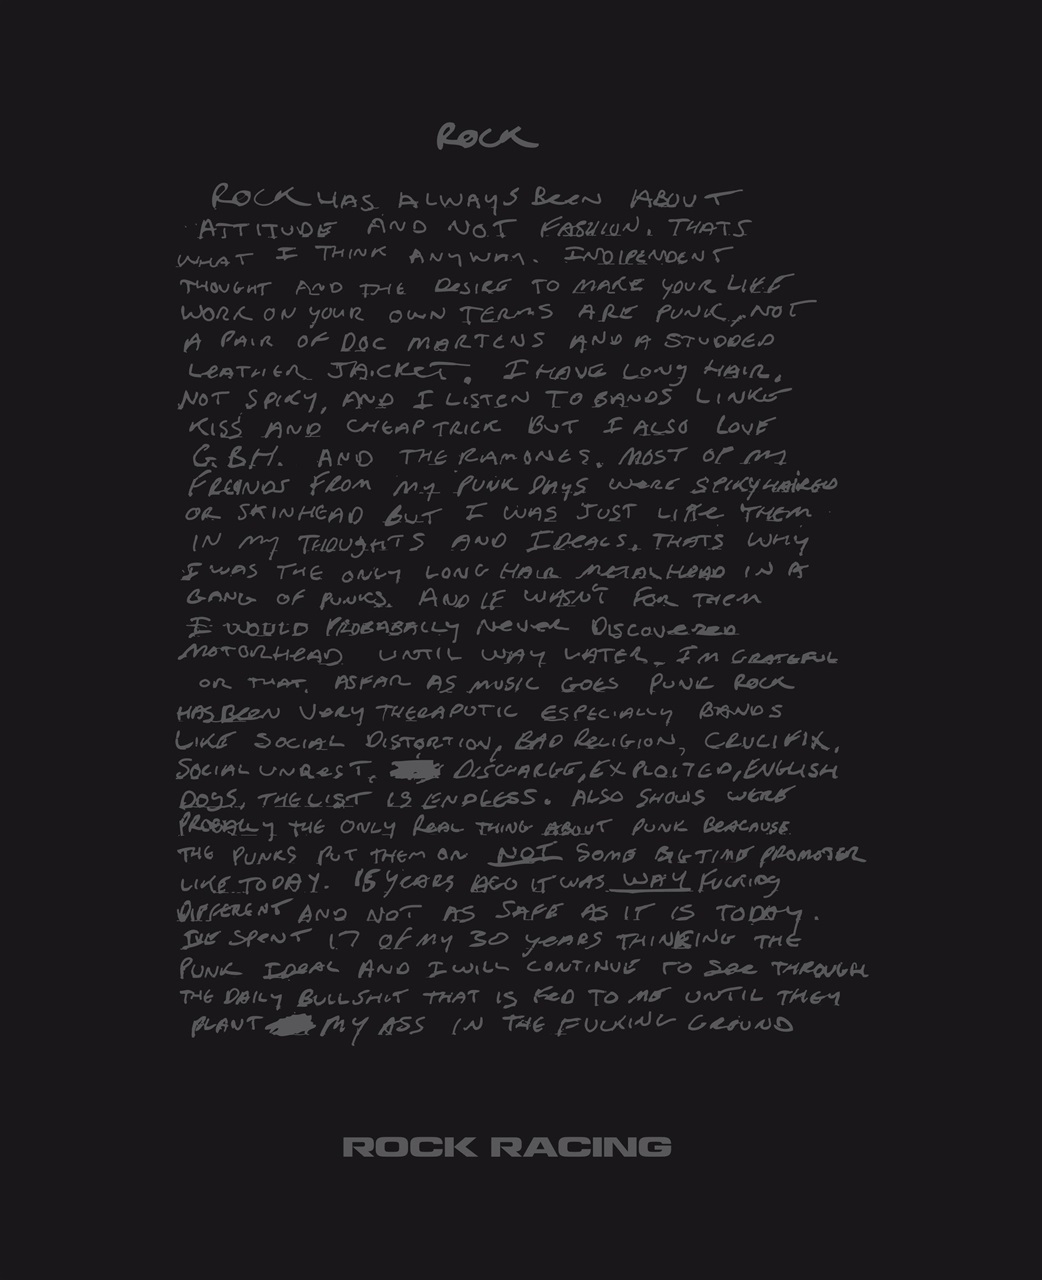 ROCK
ROCK HAS ALWAYS BEEN ABOUT
ATTITUDE AND NOT FASHION. THATS
WHAT I THINK ANYWAY. INDIPENDENT
THOUGHT AND THE DESIRE TO MAKE YOUR LIFE
WORK ON YOUR OWN TERMS ARE PUNK, NOT
A PAIR OF DOC MARTENS AND A STUDDED
LEATHER JACKET. I HAVE LONG HAIR,
NOT SPIKY, AND I LISTEN TO BANDS LINKE
KISS AND CHEAP TRICK BUT I ALSO LOVE
G.BH. AND THE RAMONES. MOST OF MY
FREINDS FROM MY PUNK DAYS WERE SPIKY HAIRED
OR SKINHEAD BUT I WAS JUST LIKE THEM
IN MY THOUGHTS AND IDEALS. THATS WHY
I WAS THE ONLY LONG HAIR METALHEAD IN A
GANG OF PUNKS. AND IF WASN'T FOR THEM
I WOULD PROBABALLY NEVER DISCOVERED
MOTORHEAD UNTIL WAY LATER. I'M GRATEFUL
OR THAT. AS FAR AS MUSIC GOES PUNK ROCK
HAS BEEN VERY THERAPUTIC ESPECIALLY BANDS
LIKE SOCIAL DISTORTION, BAD RELIGION, CRUCIFIX,
SOCIAL UNREST, DISCHARGE, EXPLOITED, ENGLISH
DOGS, THE LIST IS ENDLESS. ALSO SHOWS WERE
PROBALLY THE ONLY REAL THING ABOUT PUNK BEACAUSE
THE PUNKS PUT THEM ON NOT SOME BIGTIME PROMOTER
LIKE TODAY. 15 YEARS AGO IT WAS WAY FUCKING
DIFFERENT AND NOT AS SAFE AS IT IS TODAY.
IVE SPENT 17 OF MY 30 YEARS THINKING THE
PUNK IDEAL AND I WILL CONTINUE TO SEE THROUGH
THE DAILY BULLSHIT THAT IS FED TO ME UNTIL THEY
PLANT MY ASS IN THE FUCKING GROUND
ROCK RACING